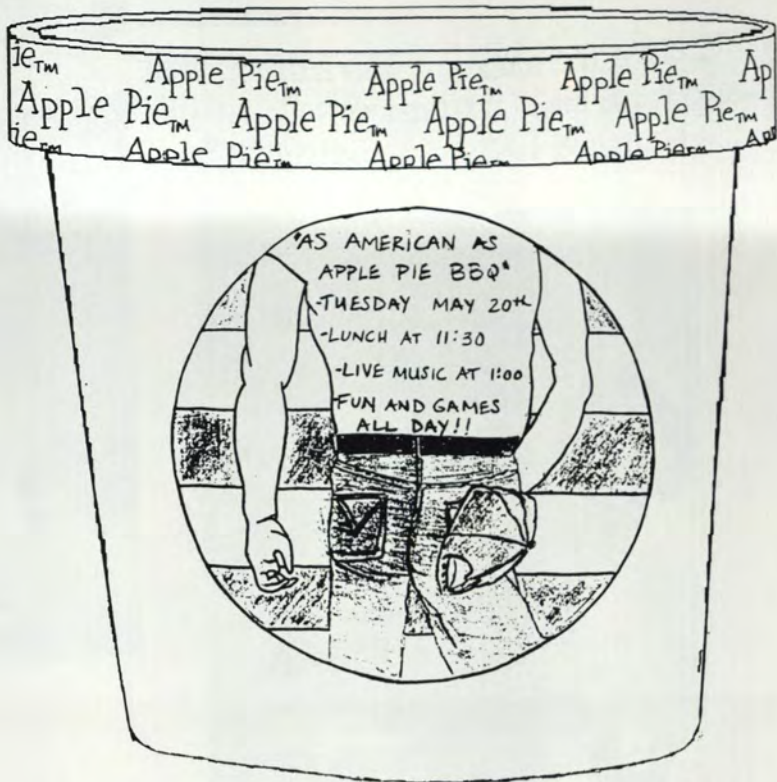 ie™
Apple Pie™
Apple Pie™
Apple Pie™
Ap
Apple Pie™
Apple Pie™
Apple Pie™
Apple Pie™
ie™
Apple Pie™
Apple Pie™
Apple Pie™
App
"AS AMERICAN AS
APPLE PIE BBQ"
-TUESDAY MAY 20th
-LUNCH AT 11:30
-LIVE MUSIC AT 1:00
-FUN AND GAMES
ALL DAY!!